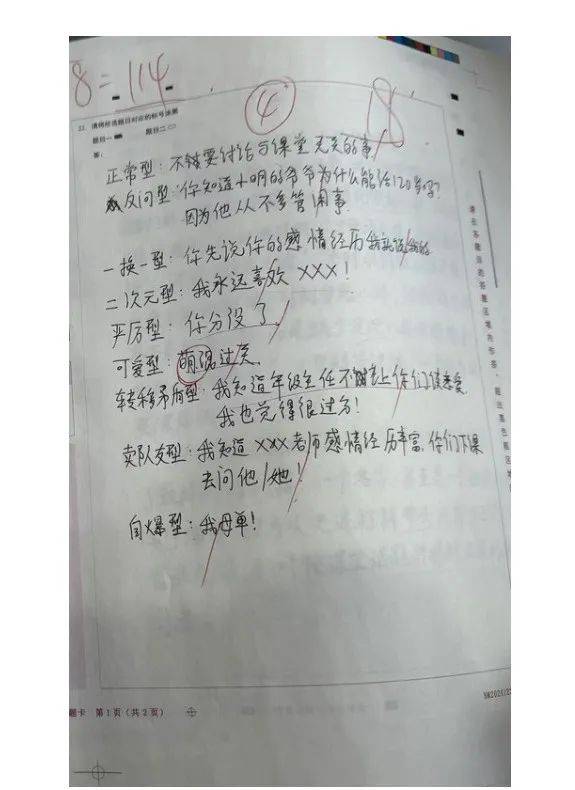 8=114
4
8
22. 请将所选题目对应的标号涂黑
题目一 题目二
答：
正常型：不要讨论与课堂无关的事
反问型：你知道小明的爷爷为什么能活120岁吗？
因为他从不多管闲事
一换一型：你先说你的感情经历我再说我的
二次元型：我永远喜欢 XXX！
严厉型：你分没了
可爱型：萌混过关
转移矛盾型：我知道年级主任不让上你们谈恋爱，
我也觉得很过分！
卖队友型：我知道 XXX 老师感情经历丰富，你们下课
去问他/她！
自爆型：我母单！
请在各题目的答题区域内作答，超出黑色矩形
题卡 第1页（共2页）